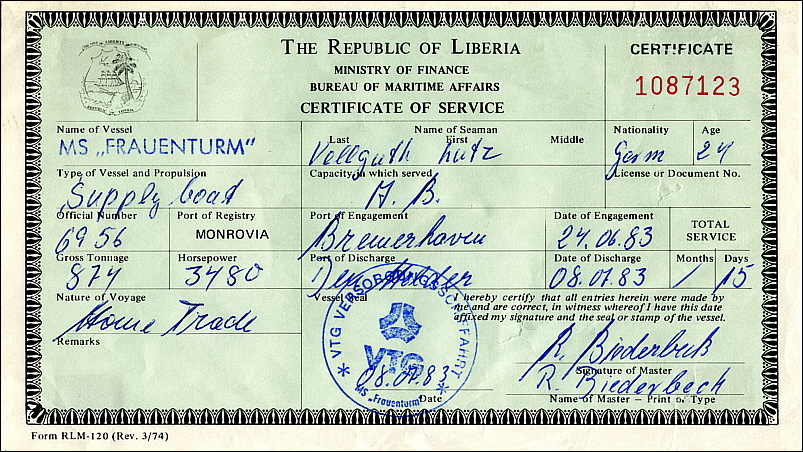 THE REPUBLIC OF LIBERIA
MINISTRY OF FINANCE
BUREAU OF MARITIME AFFAIRS
CERTIFICATE OF SERVICE
CERTIFICATE
1087123
Name of Vessel
MS „FRAUENTURM"
Name of Seaman
Last First Middle
Vollguth Lutz
Nationality
Germ
Age
24
Type of Vessel and Propulsion
Supply boat
Capacity in which served
A. B.
License or Document No.
Official Number
6956
Port of Registry
MONROVIA
Port of Engagement
Bremerhaven
Date of Engagement
24.06.83
TOTAL
SERVICE
Gross Tonnage
874
Horsepower
3480
Port of Discharge
Den Helder
Date of Discharge
08.07.83
Months
/
Days
15
Nature of Voyage
Home Trade
Vessel Seal
VTG VERSORGUNGSSCHIFFAHRT
VTG
MS „Frauenturm"
I hereby certify that all entries herein were made by
me and are correct, in witness whereof I have this date
affixed my signature and the seal or stamp of the vessel.
Remarks
R. Biederbeck
Signature of Master
08.07.83
Date
R. Biederbeck
Name of Master – Print or Type
Form RLM-120 (Rev. 3/74)